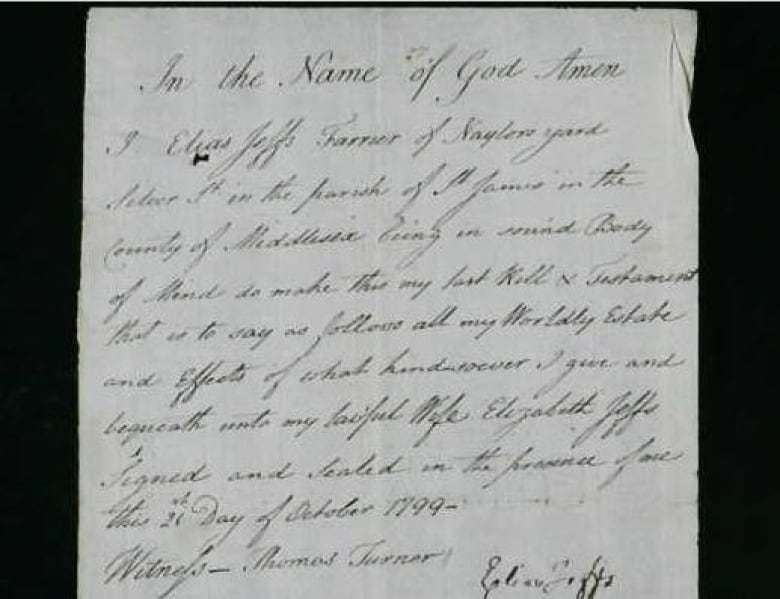 In the Name of God Amen
I Elias Jeffs Farrier of Naylors yard
Silver St in the parish of St James in the
County of Middlesex being in sound Body
of Mind do make this my last Will & Testament
that is to say as follows all my Worldly Estate
and Effects of what kind soever I give and
bequeath unto my lawful Wife Elizabeth Jeffs
Signed and Sealed in the presence of me
this 21st Day of October 1799-
Witness- Thomas Turner
Elias Jeffs